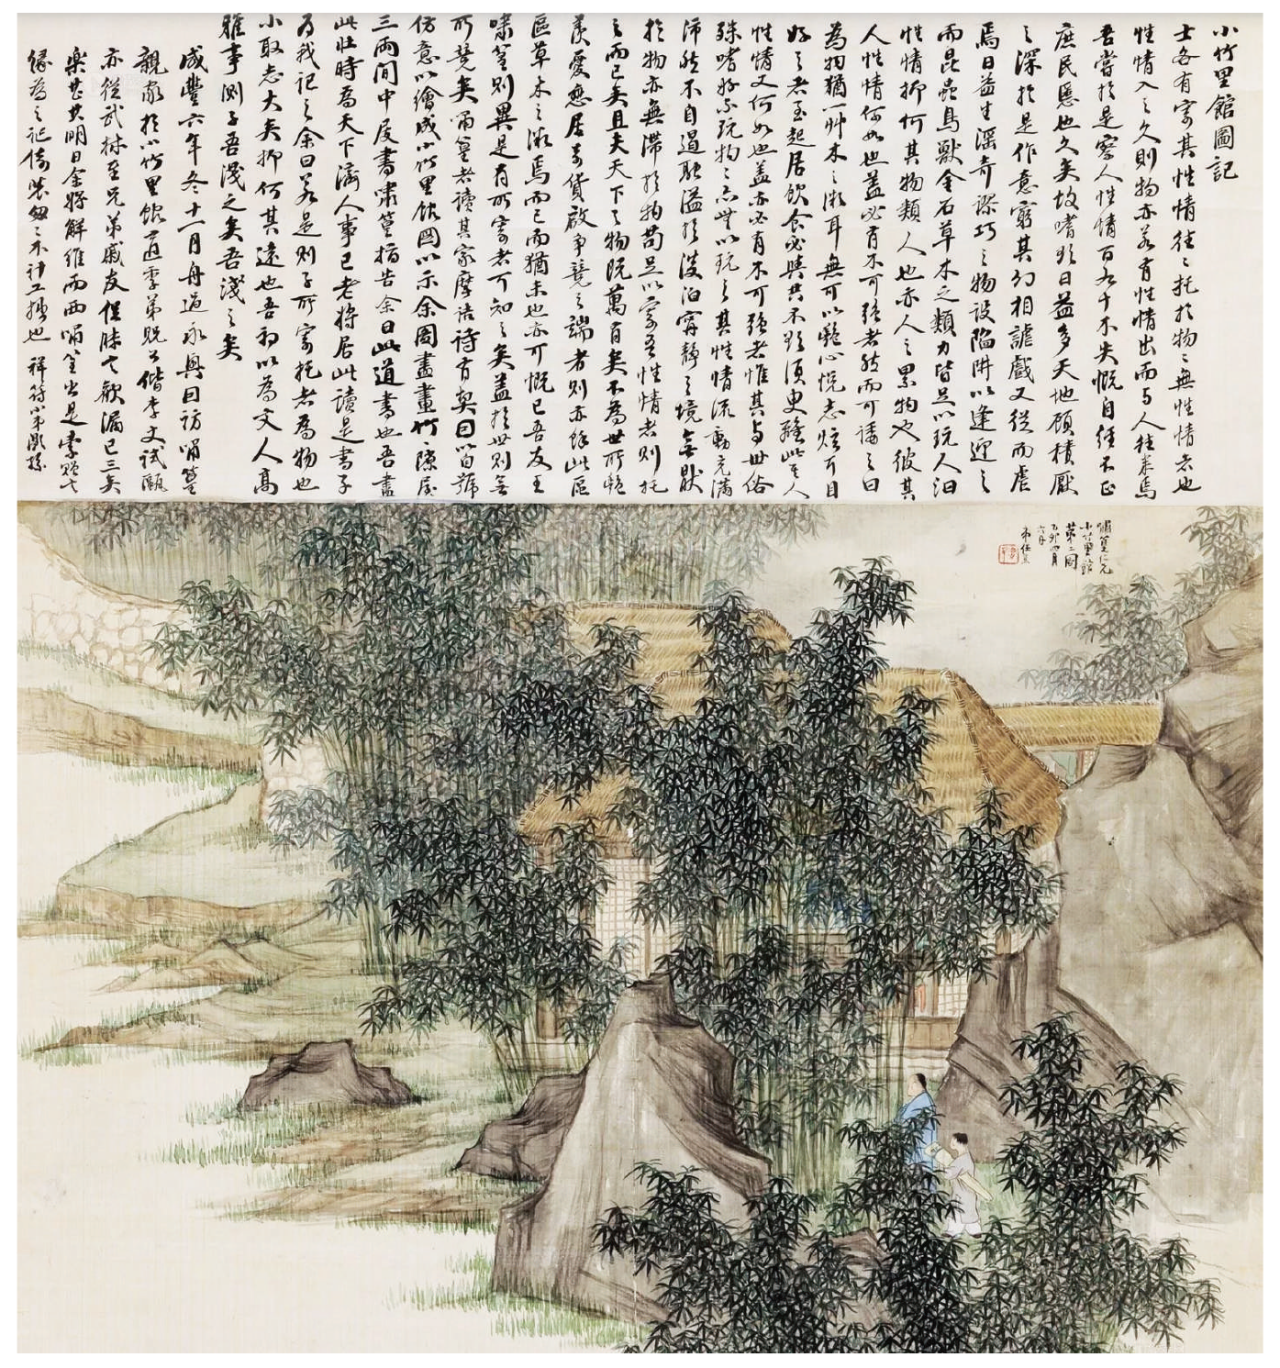 小竹里館圖記
士各有寄其性情往々托於物々無性情者也
性情入之久則物亦若有性情出而与人往来焉
吾嘗於是察人性情百不千不失慨自任不正
庶民慝也久矣故嗜欲日益多天地顧積厭
之深於是作意窮其幻相謔戲又從而虐
焉日益生滛奇譎巧之物設陷阱以逢迎之
而昆蟲鳥獸金石草木之類力皆足以玩人汨
性情抑何其物類人也亦人之累物也彼其
人性情何如也蓋必有不可强者然而可諉之曰
為物猶一艸木之微耳無可以艷心悦志炫耳目
好之者至起居飲食必與共不欲須臾離此其人
性情又何如也蓋亦必有不可强者惟其与世俗
殊嗜好不玩物之亦無以玩之其性情流動充滿
沛然不自遏融溢於淡泊寧静之境無耽
於物亦無滯於物苟足以寄吾性情者則托
之而已矣且夫天下之物既萬有矣不為世所艷
羨愛戀居奇貨啟爭競之端者則亦餘此區
區草木之微焉而已而猶未也亦可慨已吾友王
嘯篁則異是有所寄者可知之矣蓋於世則無
所競矣嘯篁者讀其家摩詰詩有契因以自號
仿意以繪成小竹里館圖以示余圖畫畫竹隙屋
三兩間中反書嘯篁指告余曰此道書也吾盡
此壯時為天下濟人事已老將居此讀是書子
為我記之余曰若是則子所寄托者為物也
小取志大矣抑何其遠也吾初以為文人高
雅事測子吾淺之矣吾淺之矣
咸豐六年冬十一月舟過永興因訪嘯篁
親家於小竹里館適季弟貺公偕李文試甌
亦從武林至兄弟戚友促膝七歡漏已三矣
樂甚其明日余將解維而西嘯篁出是索題七
緣為之記倚裝匆々不計工拙也 祥符小弟
嘯篁仁兄
小竹里館
第二圖
乙卯四月